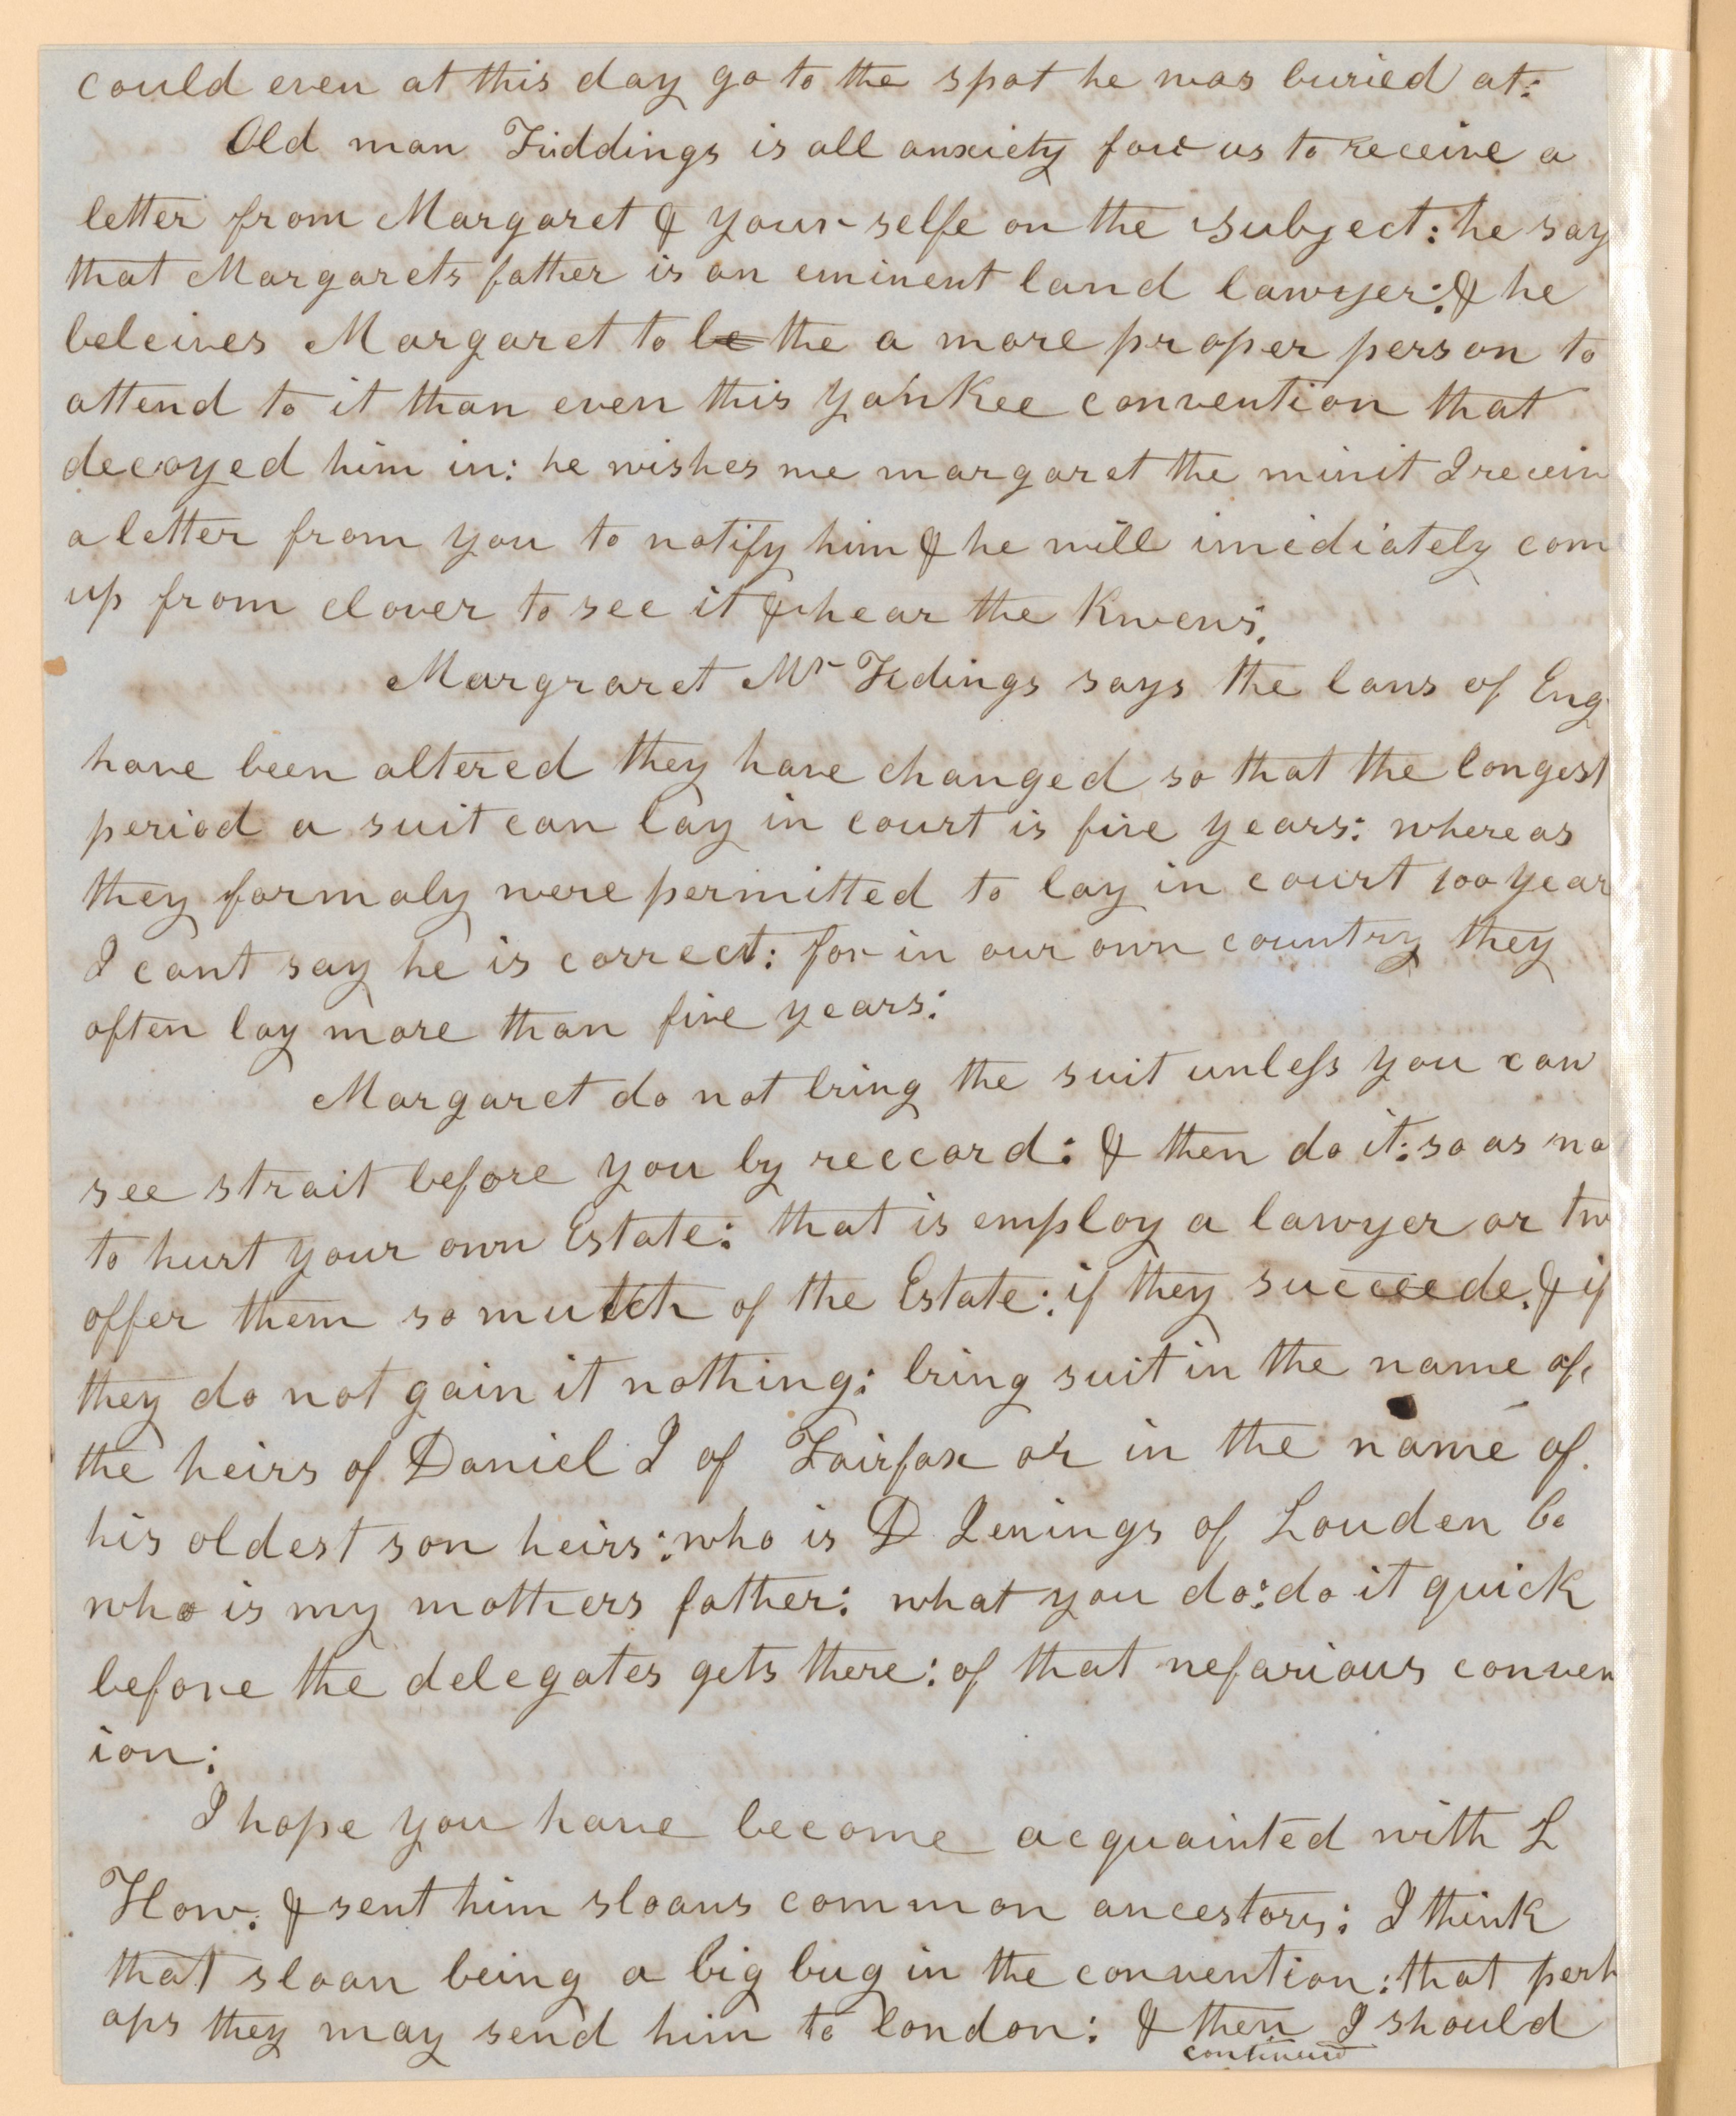 could even at this day go to the spot he was buried at:
Old man Fiddings is all anxiety for us to receive a
letter from Margaret & your selfe on the subject: he say
that Margarets father is an eminent land lawyer: & he
beleives Margaret to be the a more proper person to
attend to it than even this yankee convention that
decoyed him in: he wishes me margaret the minit I receiv
a letter from you to notify him & he will imediately com
up from clover to see it & hear the
Margraret Mr Fidings says the laws of Eng
have been altered they have changed so that the longest
period a suit can lay in court is five years: whereas
they formaly were permitted to lay in court 100 year
I cant say he is correct: for in our own country they
often lay more than five years:
Margaret do not bring the suit unless you can
see strait before you by reccord: & then do it: so as no
to hurt your own Estate: that is employ a lawyer or tw
offer them so mutch of the Estate: if they succeede, & if
they do not gain it nothing: bring suit in the name of
the heirs of Daniel J of Fairfax or in the name of
his oldest son heirs: who is D Jenings of Louden Co
who is my mothers father: what you do: do it quick
before the delegates gets there: of that nefarious conven
ion:
I hope you have become acquainted with L
How: & sent him sloans common ancestory: I think
that sloan being a big bug in the convention: that perh
aps they may send him to london: & then I should
continued